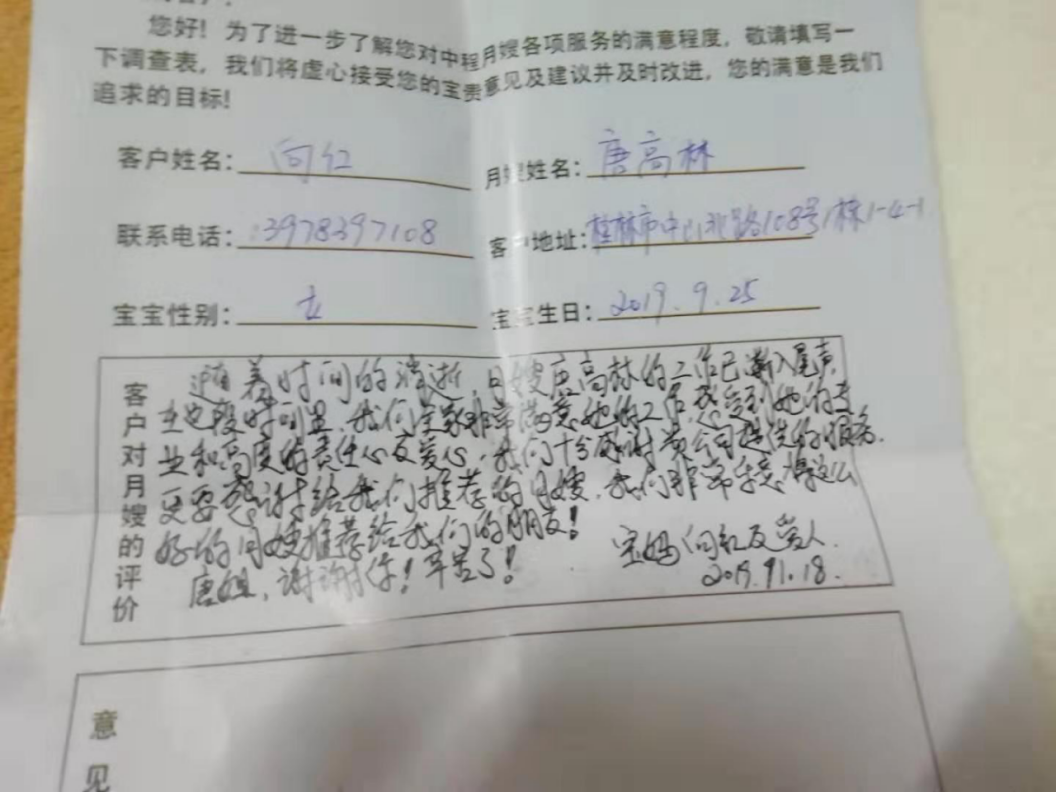 您好！为了进一步了解您对中程月嫂各项服务的满意程度，敬请填写一
下调查表，我们将虚心接受您的宝贵意见及建议并及时改进，您的满意是我们
追求的目标！
客户姓名： 向红 月嫂姓名： 唐高林
联系电话： 13978397108 客户地址： 桂林市中山北路108号1栋1-4-1
宝宝性别： 女 宝宝生日： 2019.9.25
客户对月嫂的评价
随着时间的消逝，月嫂唐高林的工作已渐入尾声，
在这段时间里，我们全家非常满意她的工作，感受到她的专
业和高度的责任心及爱心，我们十分感谢贵公司提供的服务.
更要感谢给我们推荐的月嫂，我们非常乐意将这么
好的月嫂推荐给我们的朋友！
唐姐，谢谢你！辛苦了！
宝妈向红及爱人.
2019.11.18.
意见